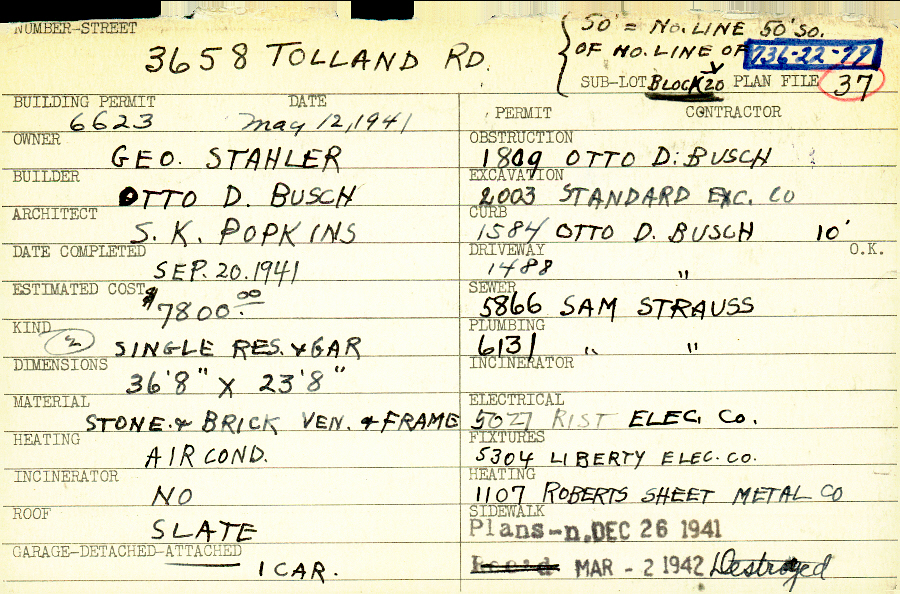 NUMBER-STREET
3658 TOLLAND RD.
50' = NO. LINE 50' SO.
OF NO. LINE OF
736-22-79
SUB-LOT BLOCK 20 PLAN FILE 37
BUILDING PERMIT DATE
6623 May 12, 1941
OWNER
GEO. STAHLER
BUILDER
OTTO D. BUSCH
ARCHITECT
S. K. POPKINS
DATE COMPLETED
SEP. 20. 1941
ESTIMATED COST
$7800.00
KIND
2 SINGLE RES. & GAR
DIMENSIONS
36'8" X 23'8"
MATERIAL
STONE. & BRICK VEN. & FRAME
HEATING
AIR COND.
INCINERATOR
NO
ROOF
SLATE
GARAGE-DETACHED-ATTACHED
1 CAR.
PERMIT CONTRACTOR
OBSTRUCTION
1809 OTTO D. BUSCH
EXCAVATION
2003 STANDARD EXC. CO
CURB
1584 OTTO D. BUSCH 10'
DRIVEWAY O.K.
1488 "
SEWER
5866 SAM STRAUSS
PLUMBING
6131 " "
INCINERATOR
ELECTRICAL
5027 RIST ELEC. CO.
FIXTURES
5304 LIBERTY ELEC. CO.
HEATING
1107 ROBERTS SHEET METAL CO
SIDEWALK
Plans-n. DEC 26 1941
MAR - 2 1942 Destroyed